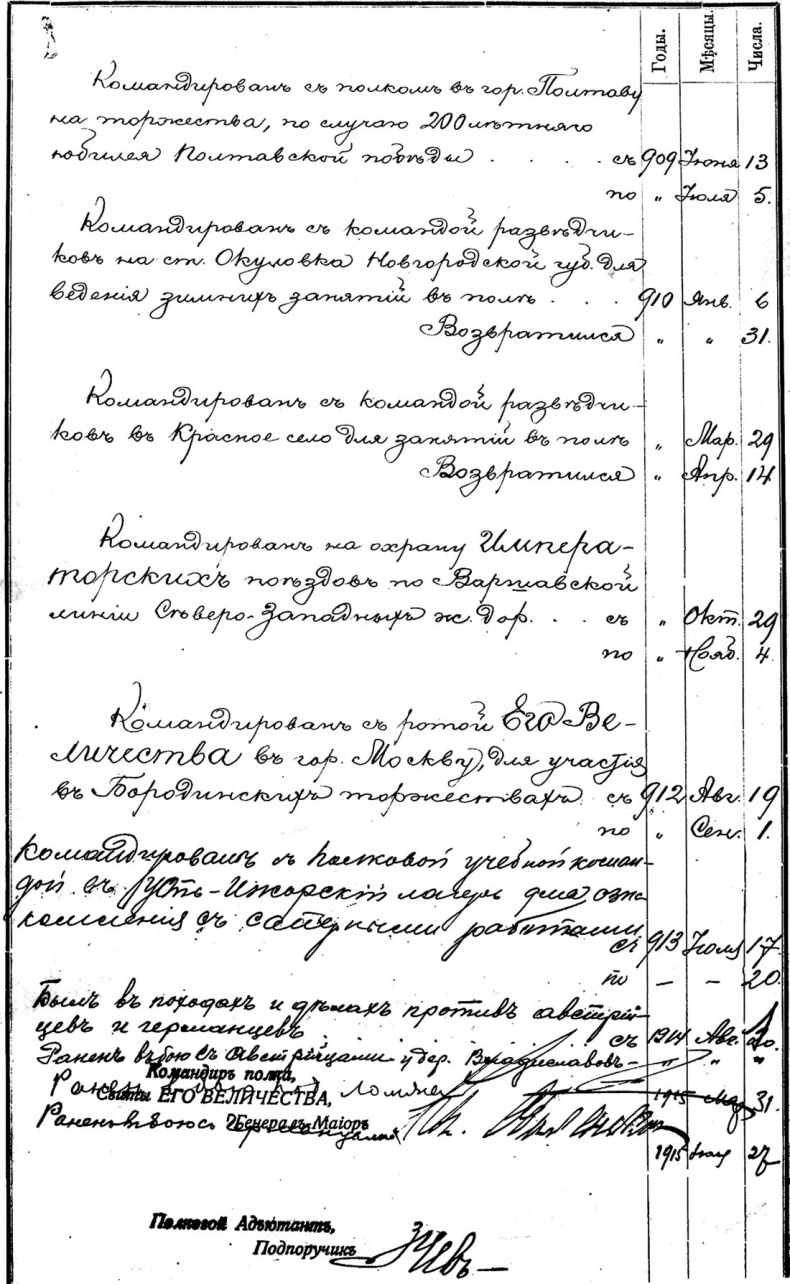 Годы. Мѣсяцы. Числа.
Командированъ съ полкомъ въ гор. Полтаву
на торжества, по случаю 200 лѣтняго
юбилея Полтавской побѣды . . . . съ 909 Іюня 13
по „ Іюля 5.
Командированъ съ командой развѣдчи-
ковъ на ст. Окуловка Новгородской губ. для
веденія зимнихъ занятій въ полѣ . . . 910 Янв. 6
Возвратился „ „ 31.
Командированъ съ командой развѣдчи-
ковъ въ Красное село для занятій въ полѣ „ Мар. 29
Возвратился „ Апр. 14
Командированъ на охрану Импера-
торскихъ поѣздовъ по Варшавской
линіи Сѣверо-Западныхъ ж. дор. . . съ „ Окт. 29
по „ Нояб. 4.
Командированъ съ ротой Его Ве-
личества въ гор. Москву, для участія
въ Бородинскихъ торжествахъ съ 912 Авг. 19
по „ Сен. 1.
Командированъ съ полковой учебной коман-
дой въ Усть-Ижорскій лагерь для озна
комленія съ саперными работами
съ 913 Іюля 17
по — — 20.
Былъ въ походахъ и дѣлахъ противъ австрій-
цевъ и германцевъ съ 1914 Авг. 20.
Раненъ въ бою съ австрійцами у дер. Владиславовъ — „ „ „
Командиръ полка,
Раненъ Ломже 1915 31.
Свиты ЕГО ВЕЛИЧЕСТВА,
Генералъ-Маіоръ
Раненъ въ бою съ
1915 Іюля 27
Полковой Адъютантъ,
Подпоручикъ